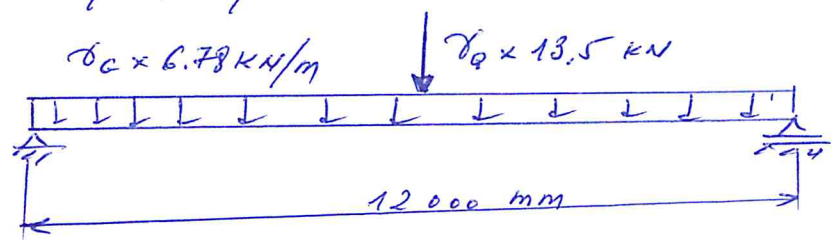 γG × 6.78 KN/m
γQ × 13.5 KN
12 000 mm